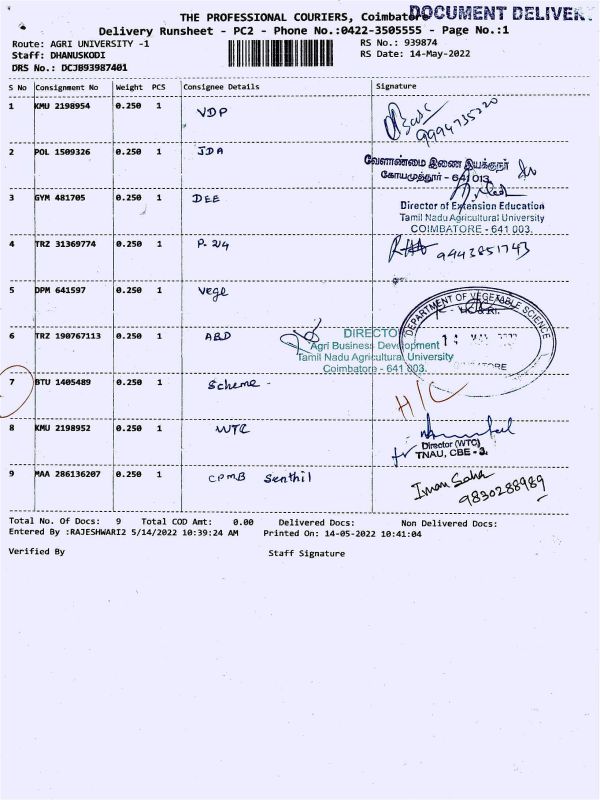 THE PROFESSIONAL COURIERS, Coimbatore
DOCUMENT DELIVER
Delivery Runsheet - PC2 - Phone No.:0422-3505555 - Page No.:1
Route: AGRI UNIVERSITY -1
RS No.: 939874
Staff: DHANUSKODI
RS Date: 14-May-2022
DRS No.: DCJB93987401
S No Consignment No Weight PCS Consignee Details Signature
1 KMU 2198954 0.250 1 VDP
9994735220
2 POL 1509326 0.250 1 JDA
வேளாண்மை இணை இயக்குநர்
கோயமுத்தூர் - 641 013
3 GYM 481705 0.250 1 DEE
Director of Extension Education
Tamil Nadu Agricultural University
COIMBATORE - 641 003.
4 TRZ 31369774 0.250 1 P. 2/4
9443851743
5 DPM 641597 0.250 1 Vege
DEPARTMENT OF VEGETABLE SCIENCE
6 TRZ 190767113 0.250 1 ABD
DIRECTO
Agri Business Development
Tamil Nadu Agricultural University
Coimbatore - 641 003.
7 BTU 1405489 0.250 1 Scheme -
H/C
8 KMU 2198952 0.250 1 WTC
Director (WTC)
TNAU, CBE - 3.
9 MAA 286136207 0.250 1 CPMB Senthil
Iman Saha
9830288989
Total No. Of Docs: 9 Total COD Amt: 0.00 Delivered Docs: Non Delivered Docs:
Entered By :RAJESHWARI2 5/14/2022 10:39:24 AM Printed On: 14-05-2022 10:41:04
Verified By Staff Signature